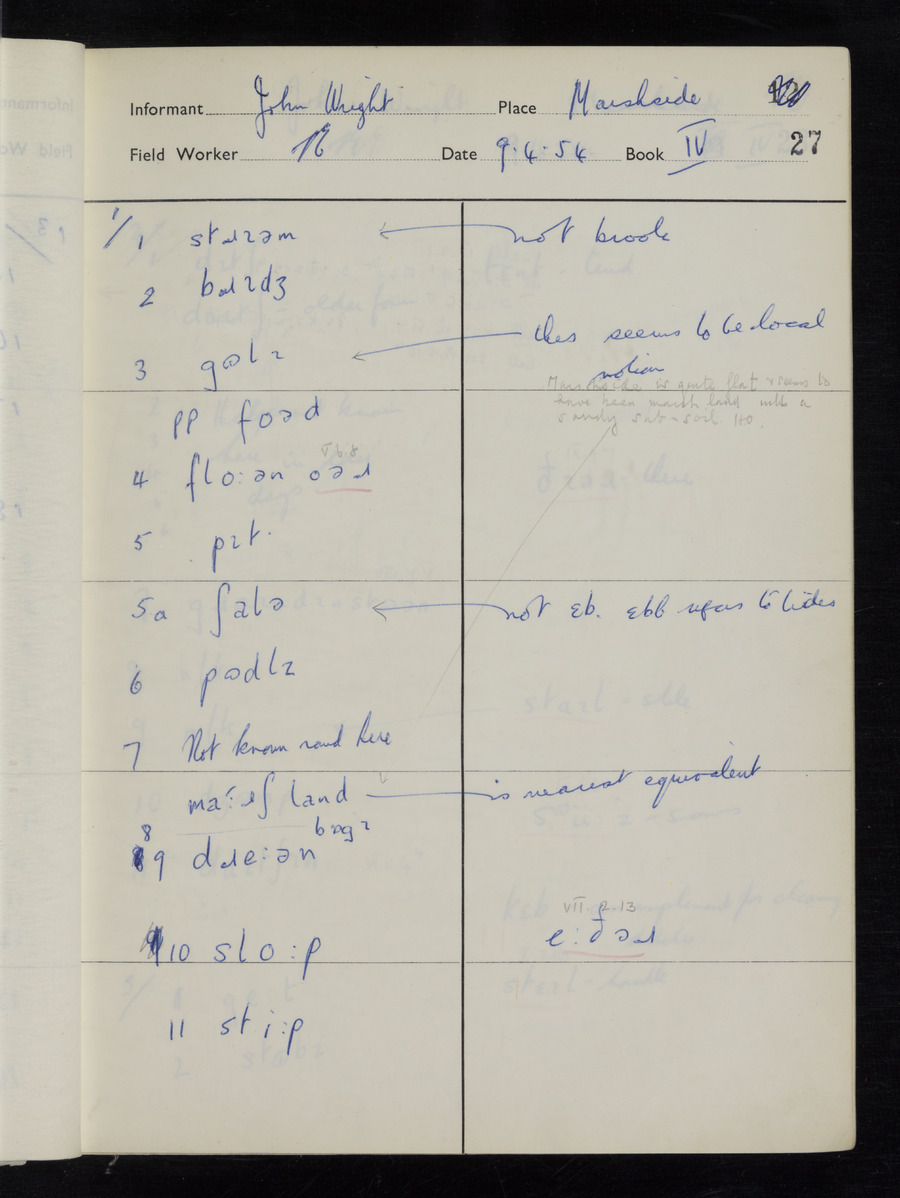 Informant John Wright Place Marshside
Field Worker Date 9.4.54 Book IV 27
1/1 stɹɛəm not brook
2 bɹɪdʒ
3 gɒlɪ this seems to be local
notion
Marshside is quite flat & seems to
have been marsh land with a
sandy sub-soil.
pp foəd
V 6 8
4 flo:ən oəɹ
5 pɪt.
5a ʃalə not ɛb. ebb refers to tides
6 pɒdlɪ
7 Not known round here
ma:ɹʃ land is nearest equivalent
bɒgɪ
8
9 dɹe:ən
VII 2 13
10 slo:p e:ðəɹ
11 sti:p